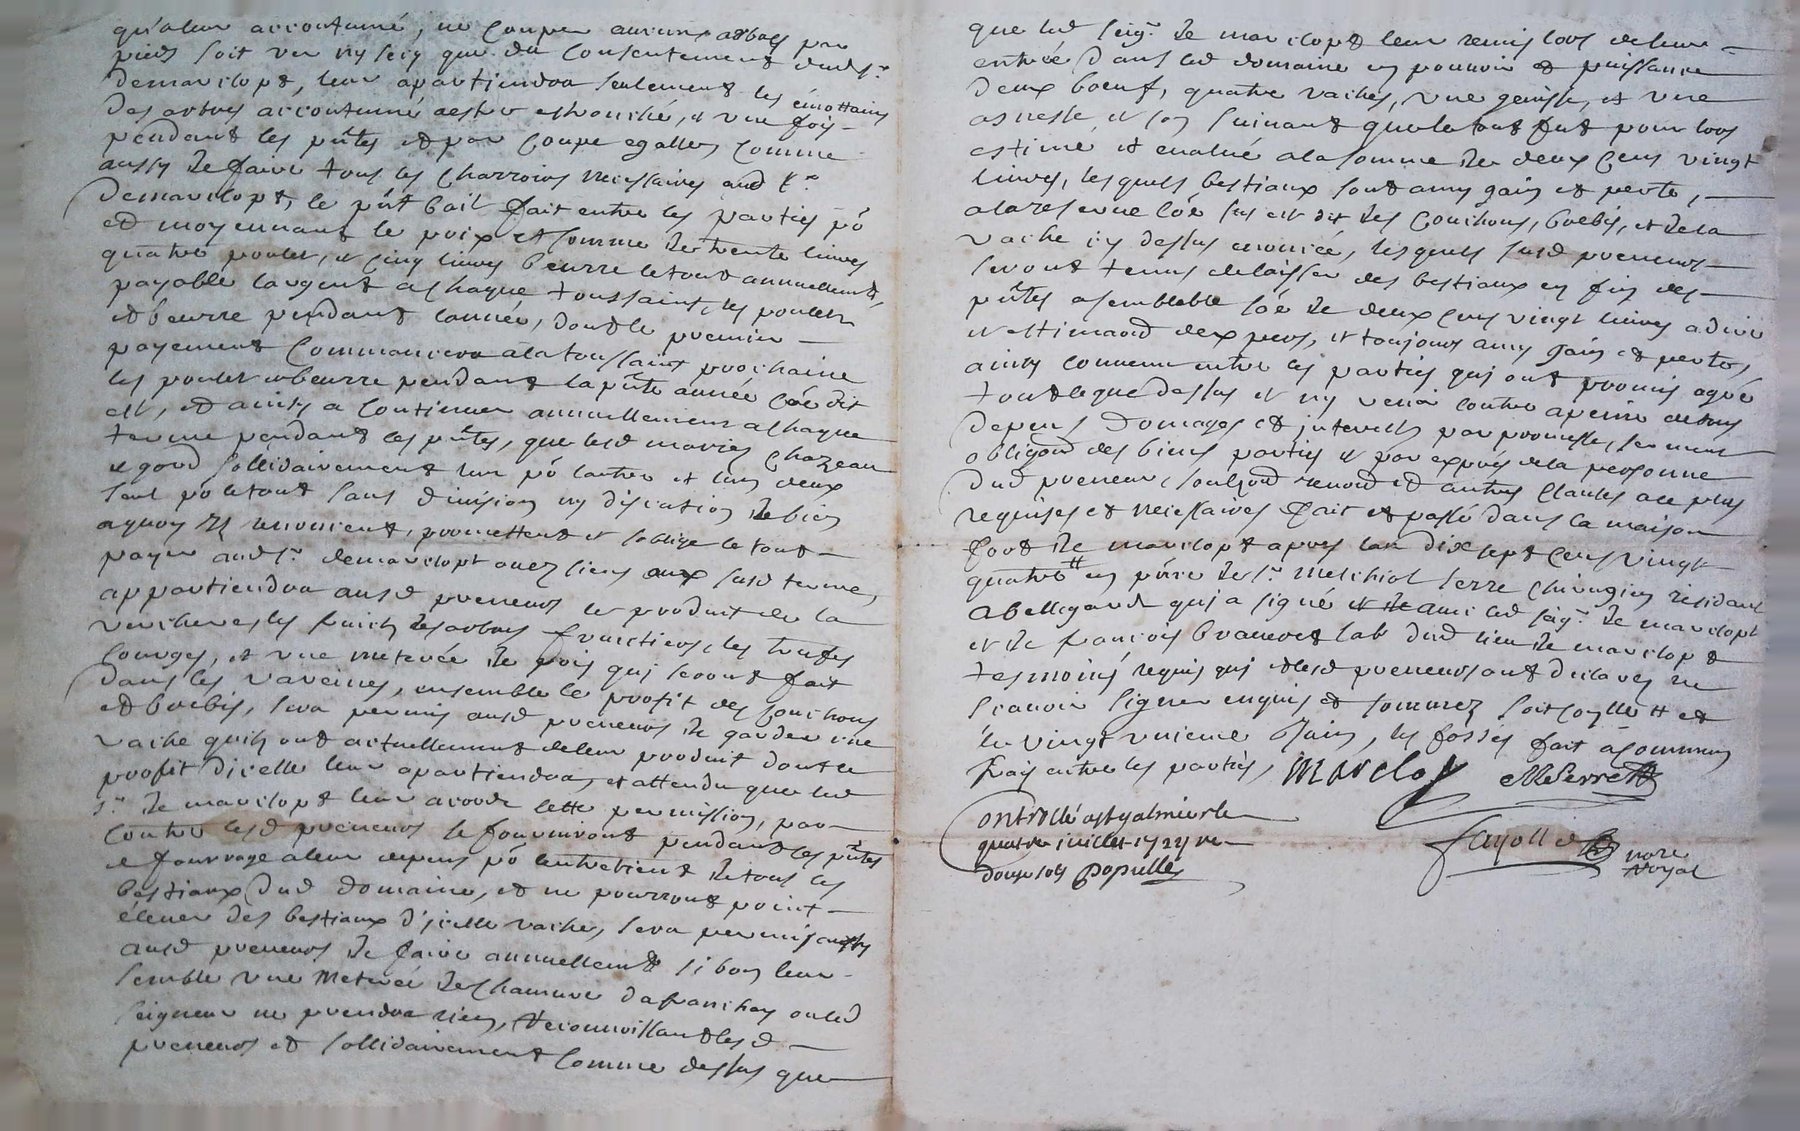 qu'aleur accoutumé, ne couper aucuns arbres par
pieds soit ver ny secq que du consentement dud sr
demarclopt, leur apartiendra seulement les émottains
des arbres accoutumé aestre esbranché, et une fois
pendant les pntes et par coupe egalles, comme
aussy de faire tous les charrois neiessaires aud sr
demarclopt, le pnt bail fait entre les parties po
et moyennant le prix et somme de trente livres
quatre poulets, et cinq livres beurre le tout annuellement,
payable largent achaque toussaint, les poulets
et beurre pendant lannée, dont le premier
payement commancera ala toussaint prochaine
les poulet et beurre pendant la pnte année coe dit
est, et ainsy a continuer annuellement achaque
terme pendant les pntes, que lesd mariés chazeau
et goud sollidairement lun po lautre et lun deux
seul po le tout sans division ny discution de bien
aquoy ils renoncent, promettent et soblige le tout
payer aud sr demarclopt avez liens aux susd terme,
appartiendra ausd preneurs le produit de la
verchere, les fruich des arbres fruictiers, les trufes
courges, et une meterée de pois qui seront fait
dans les vareines, ensemble le profit des couchons
et brebis, sera permis ausd preneurs de garder une
vache quils ont actuellement de leur produit dont le
profit dicelle leur apartiendra, et attendu que led
sr de marclopt leur acorde cette permission, par
contre lesd preneurs se fourniront pendant les pntes
de fourrage aleur depens po lentretient de tous les
bestiaux dud domaine, et ne pourront point
élever des bestiaux d'icelle vache, sera permis aussy
ausd preneurs de faire annuellement si bon leur
semble une meterée de chanvre da franchay ouled
seigneur ne prendra rien, reconnoissant lesd
preneurs et sollidairement comme dessus que
que led seigr de marclopt leur remis lors de leur
entrée dans led domaine en pouvoir et puissance
deux boeuf, quatre vaches, une genisse, et une
asnesse et son suivant que le tout fut pour lors
estimé et evalué ala somme de deux cens vingt
livres, lesquels bestiaux sont amy gain et perte,
ala reserve coe sus est dit des couchons, brebis, et de la
vache cy dessus enoncée, lesquels susd preneurs
seront tenus delaisser des bestiaux en fin des
pntes asemblable coe de deux cens vingt livres adire
et estimaon dexpers, et toujours amy gain et perte,
ainsy convenu entre les parties qui ont promis agréé
tout ce que dessus et ny venir contre apeine de tous
depens domages et interests par promesse, serment
obligaon des biens parties et par exprés de la personne
dud preneur, soubzon renon et autres clauses ace plus
requises et neiessaires fait et passé dans la maison
fort de marclopt apres lan dix sept cens vingt
quatre en pnce de sr Melchiol serre chirurgien residant
abellegarde qui a signé avec led seigr de marclopt
et de francois bruneret lab dud lieu de marclopt
tesmoins requis qui et lesd preneurs ont declarés ne
scavoir signer enquis et sommez soit coylle et
le vingt unieme juin, les fossés fait acommun
frais entre les parties, Marclop MSerre
Controllé astgalmier le
quatre juillet 1724 re
douze sols Populle
fayolle nore
royal